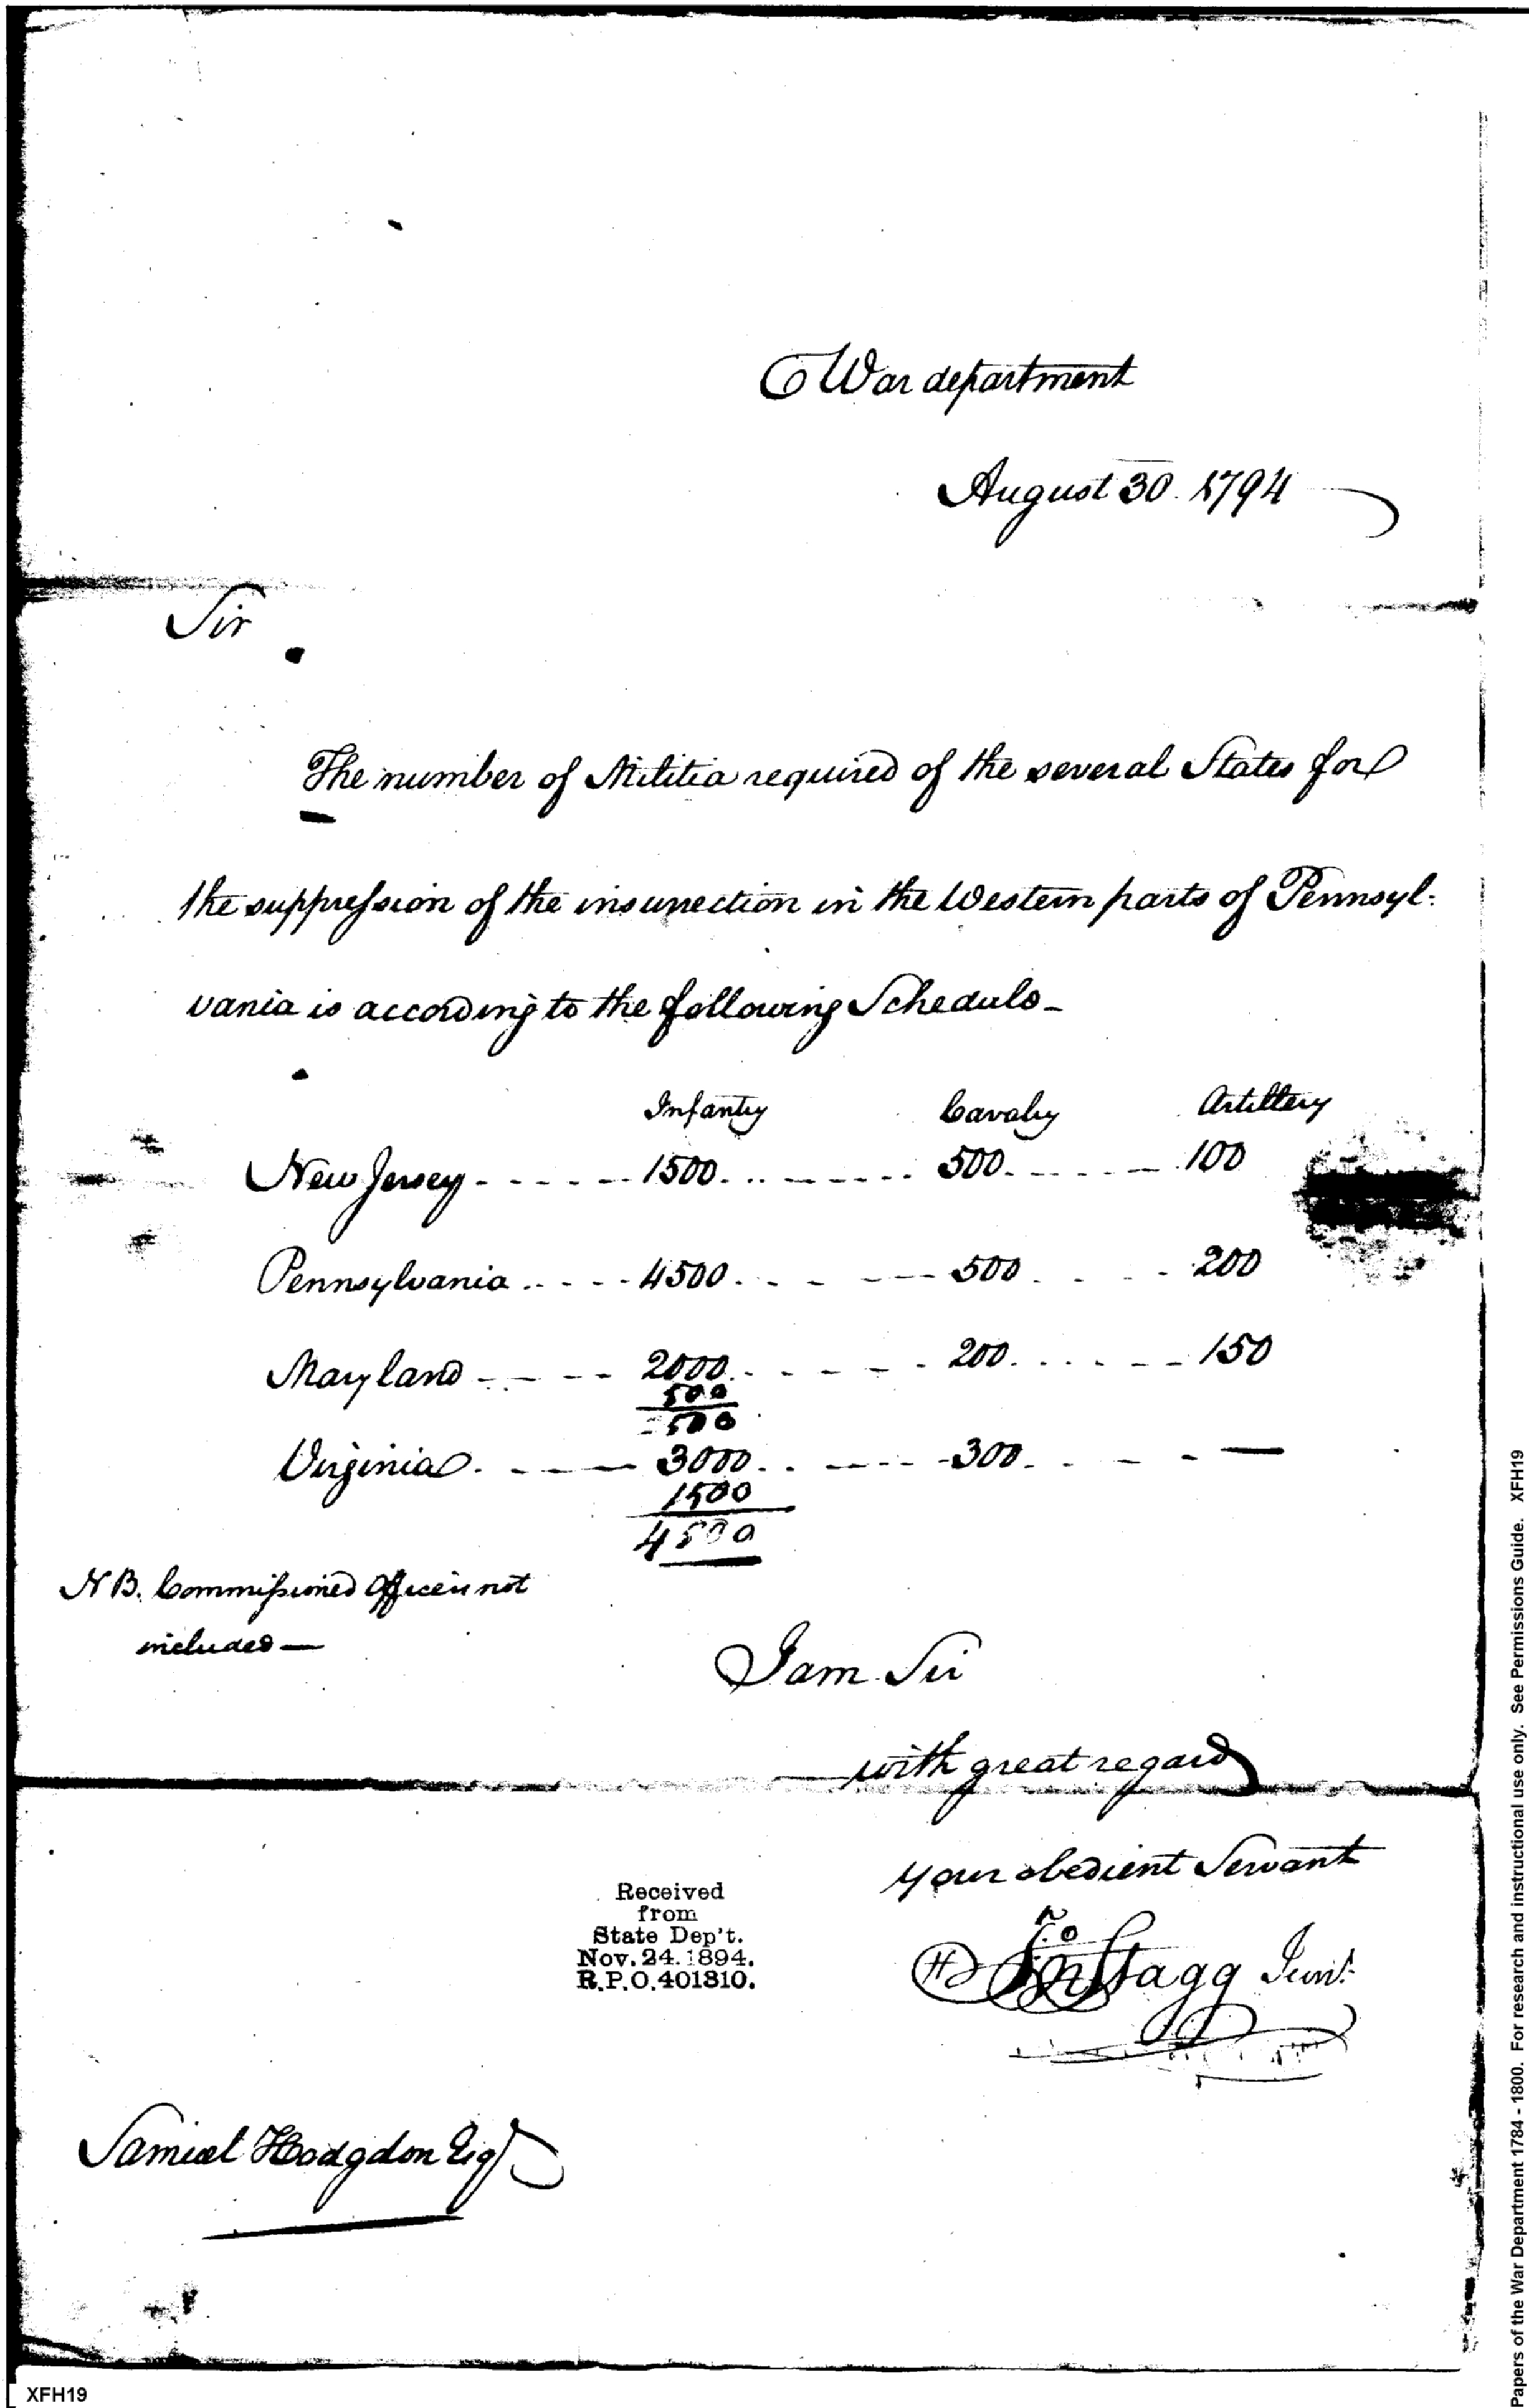 War department
August 30. 1794
Sir
The number of Militia required of the several States for
the suppression of the insurrection in the Western parts of Pennsyl-
vania is according to the following Schedule-
Infantry Cavalry Artillery
New Jersey - - - - - 1500. . . - - - - . . 500. - - - - - 100
Pennsylvania . . - - - 4500. . - - - - 500 . . . - 200
Maryland - - - - - 2000. . - - - - 200. . . . - - 150
500
500
Virginia . - - - 3000. . - - - - 300. . - - —
1500
4500
NB. Commissioned Officers not
included —
I am Sir
with great regard
your obedient Servant
Jno Stagg Junr.
Received
from
State Dep't.
Nov. 24. 1894.
R.P.O. 401310.
Samuel Hodgdon Esq
XFH19
Papers of the War Department 1784 - 1800. For research and instructional use only. See Permissions Guide. XFH19